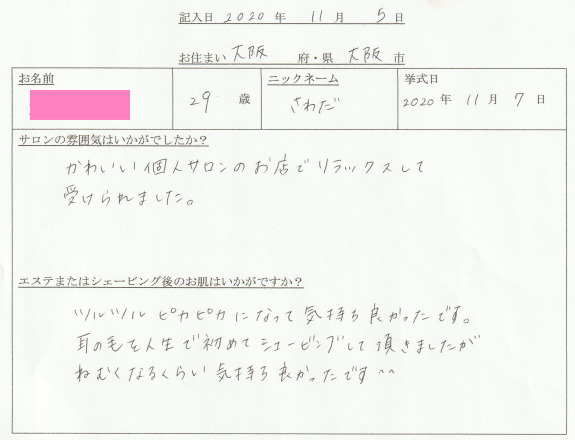 記入日 2020 年 11 月 5 日
お住まい 大阪 府・県 大阪 市
お名前 29 歳 ニックネーム さわだ 挙式日 2020 年 11 月 7 日
サロンの雰囲気はいかがでしたか?
かわいい個人サロンのお店でリラックスして
受けられました。
エステまたはシェービング後のお肌はいかがですか?
ツルツル ピカピカになって気持ち良かったです。
耳の毛を人生で初めてシェービングして頂きましたが
ねむくなるくらい気持ち良かったです〜〜